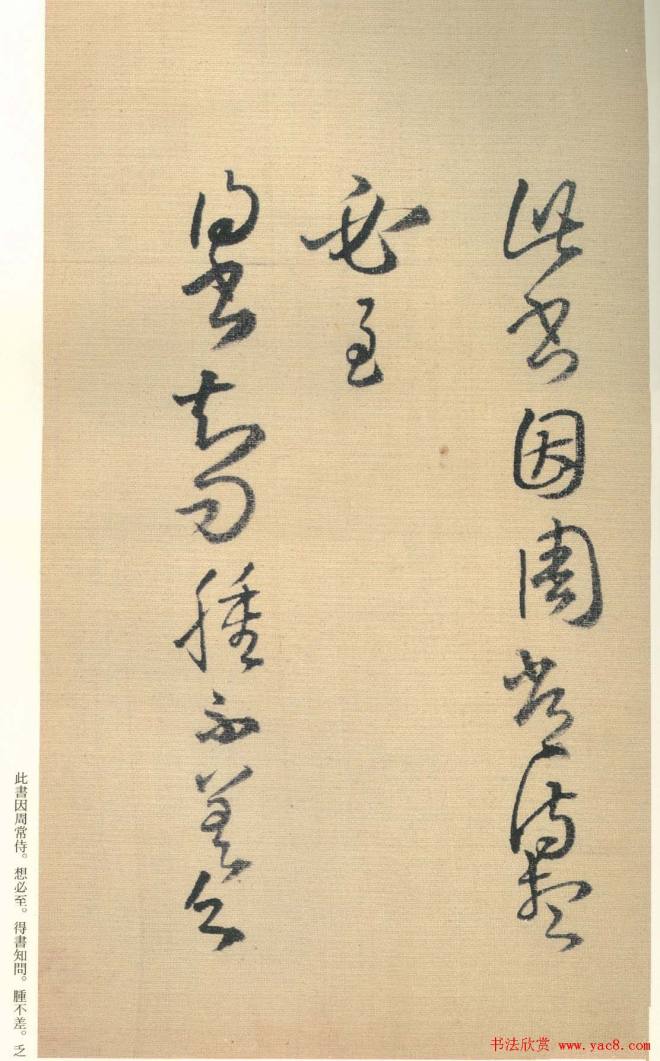 此書因周常侍想
必至
得書知問腫不差乏
此書因周常侍。想必至。得書知問。腫不差。乏
书法欣赏 www.yac8.com